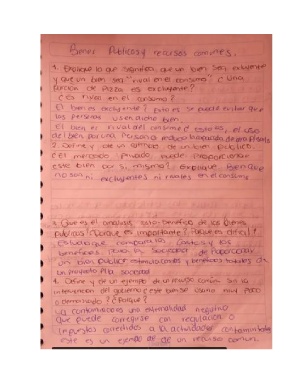 Bienes Públicos y recursos comunes.
1. Explique lo que significa que un bien sea excluyente
y que un bien sea "rival en el consumo" ¿Una
porción de Pizza es excluyente?
¿Es rival en el consumo?
El bien es excluyente? para es si puede evitar que
las personas usen dicho bien
El bien es rival de consumo: esto es, el uso
del bien por una persona reduce la de otra
2. Define y de un ejemplo de un bien público,
¿El mercado privado puede proporcionar
este bien por si mismo? Explique Bien que
no son ni excluyentes ni rivales en el consumo
3. ¿Que es el análisis costo-beneficio de los bienes
públicos? ¿Porque es importante? ¿Porque es difícil?
Estudio que compara los costos y los
beneficios para la sociedad de proporcionar
un bien público
un proyecto Pila sociedad
4. Define y de un ejemplo de recurso común. Sin la
intervención del gobierno ¿este bien se usaría muy poco
o demasiado? ¿Porque?
La contaminación es una externalidad negativa
que puede corregirse con regulación o
impuestos correctivos a la actividad contaminante
este es un ejemplo de un recurso común.